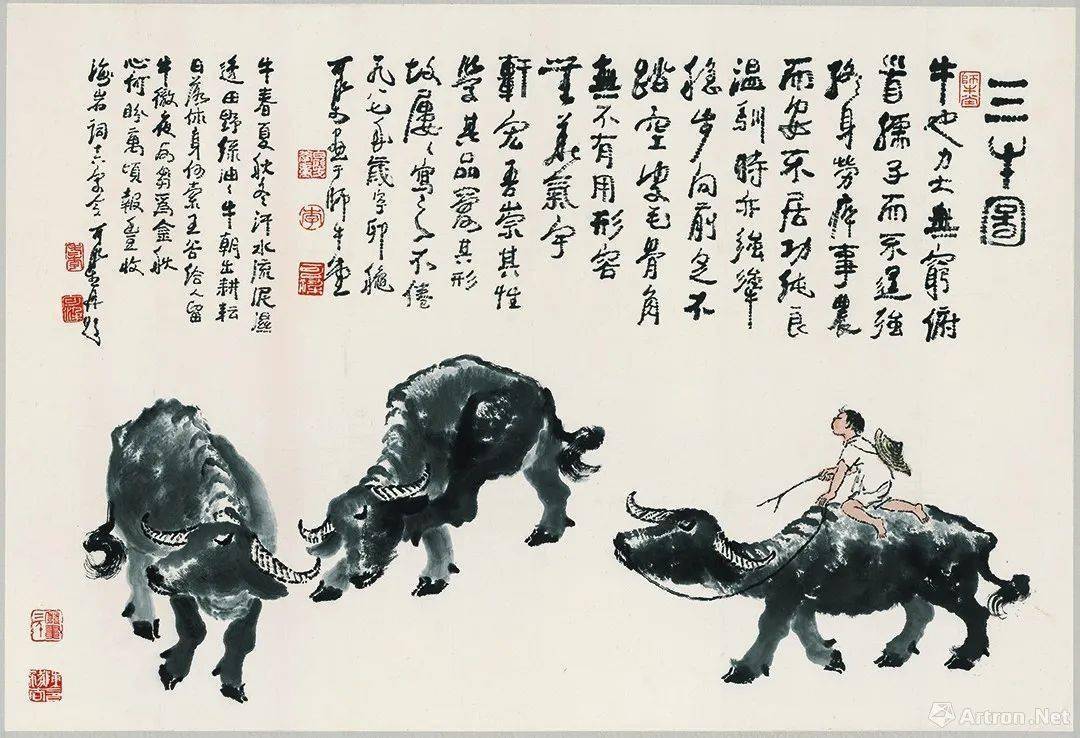 三牛圖
師牛堂
牛也力士無窮俯
首孺子而不逞強
終身勞瘁事農
而安不居功純良
溫馴時亦強犟
穩步向前足不
踏空皮毛骨角
無不有用形容
無華氣宇
軒宏吾崇其性
學其品愛其形
故屢々寫之不倦
九八七年歲字卯
可染畫于師牛堂
李
牛春夏秋冬汗水流泥濕
田野綠油々牛朝出耕耘
日落休身何索王谷給人留
牛徹夜為翁為金秋
心何盼萬頃報豐收
海岩詞 可染畫并題
Artron.Net